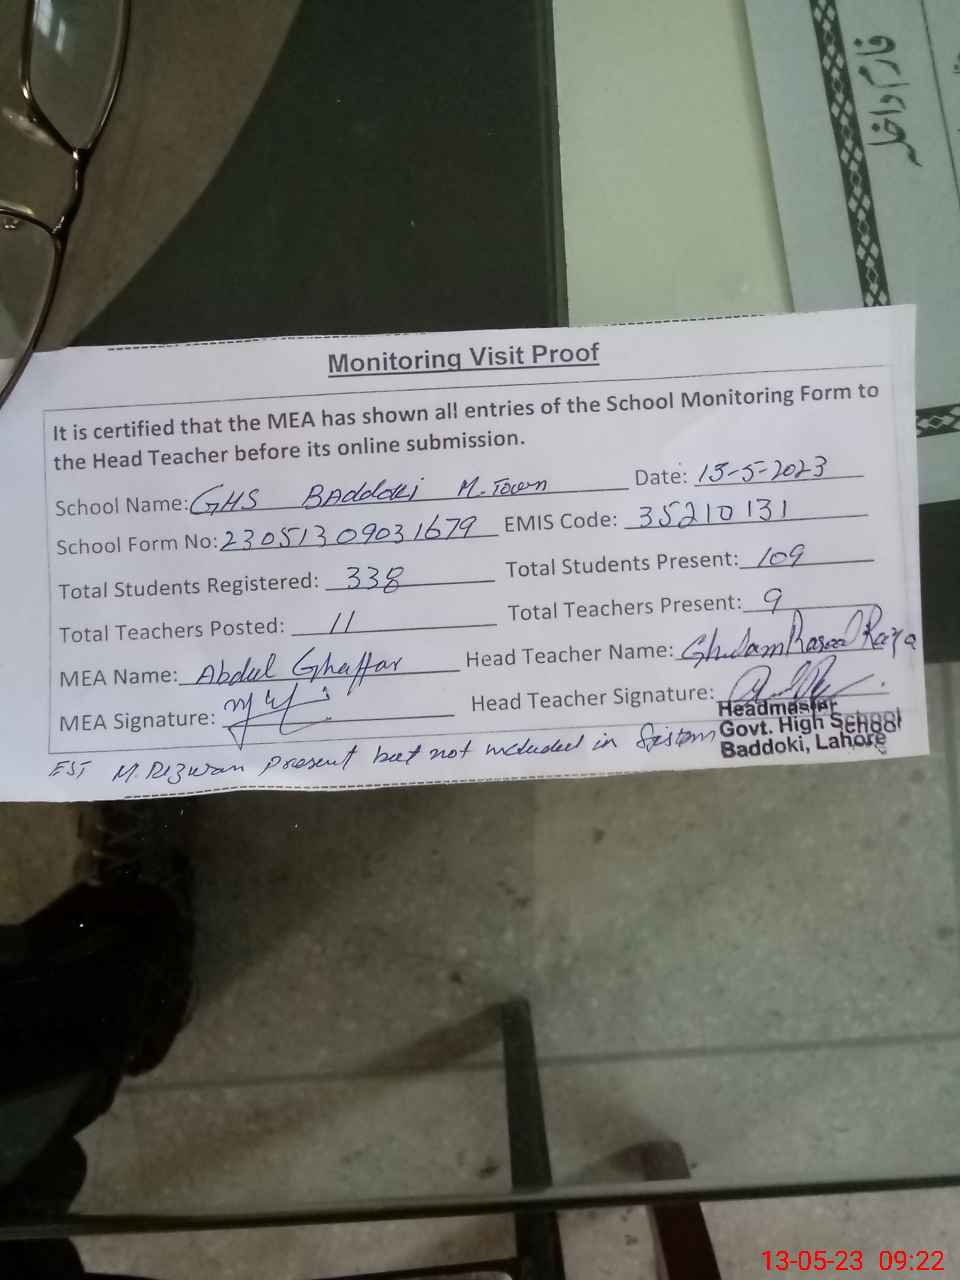 فارم داخلہ
Monitoring Visit Proof
It is certified that the MEA has shown all entries of the School Monitoring Form to
the Head Teacher before its online submission.
School Name: GHS Baddoki M. Town Date: 13-5-2023
School Form No: 230513 09031679 EMIS Code: 35210131
Total Students Registered: 338 Total Students Present: 109
Total Teachers Posted: 11 Total Teachers Present: 9
MEA Name: Abdul Ghaffar Head Teacher Name: Ghulam Rasool Raza
MEA Signature: Head Teacher Signature:
Headmaster
Govt. High School
Baddoki, Lahore
EST M. Rizwan present but not included in Sistem
13-05-23 09:22